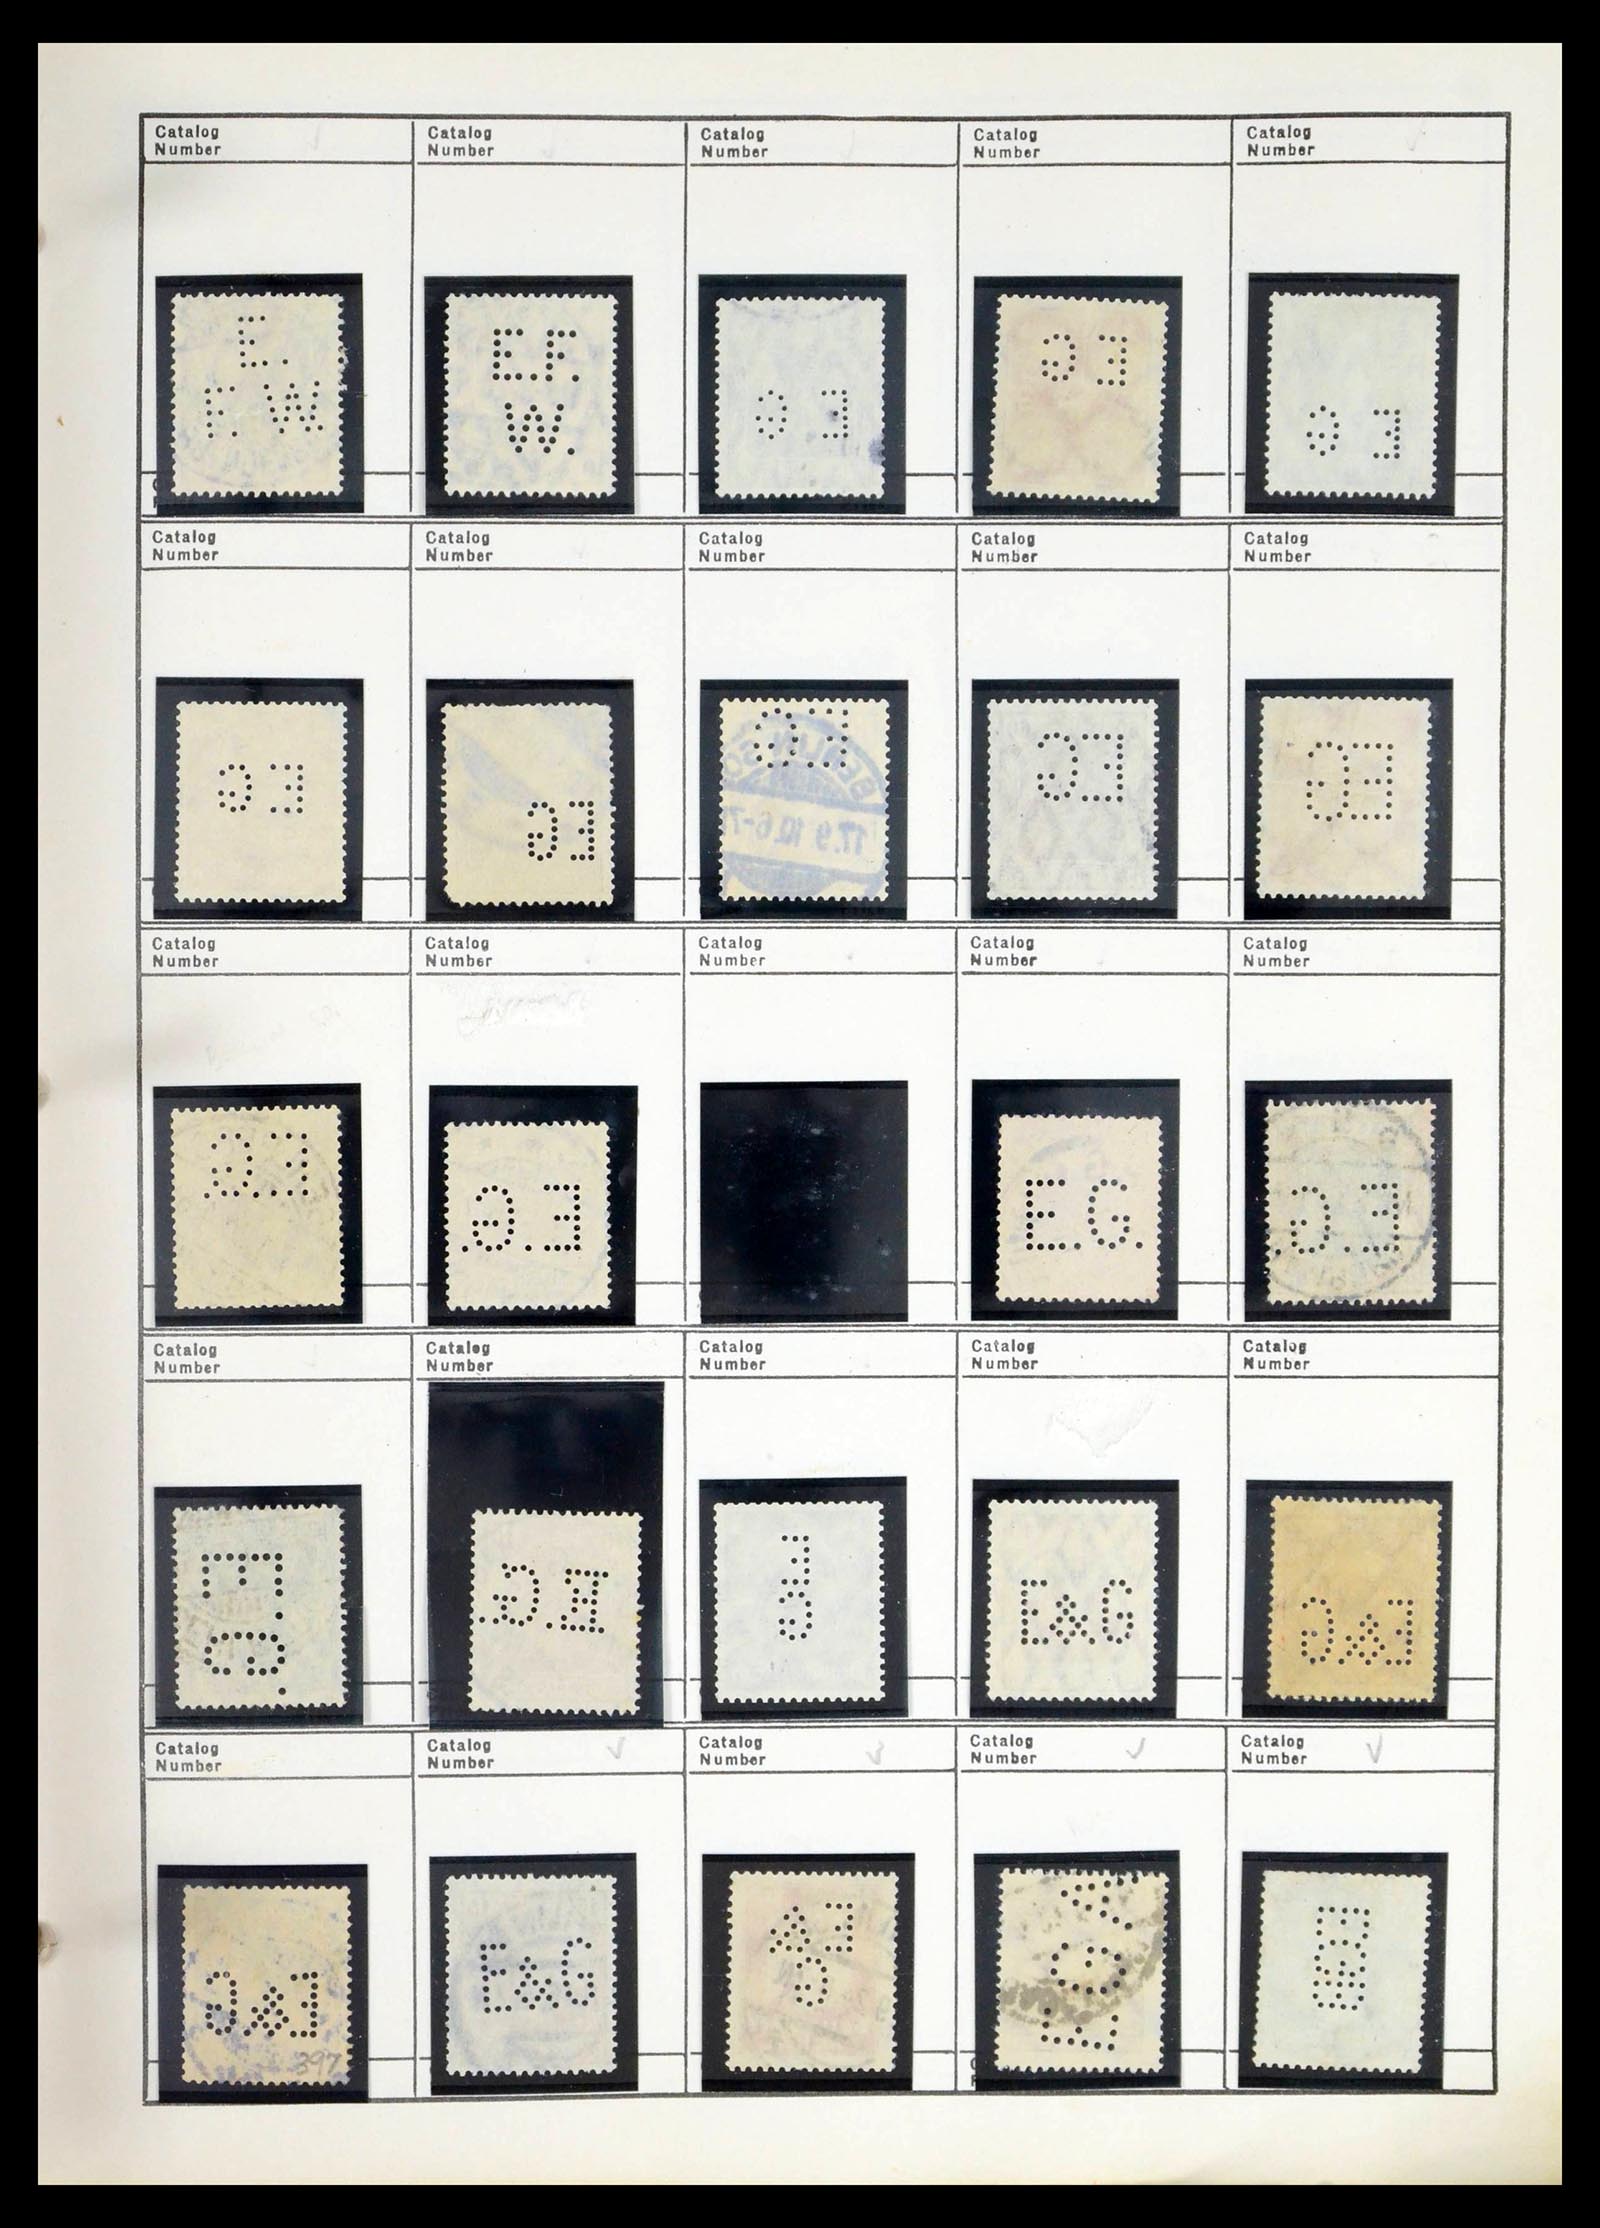 Catalog Catalog Catalog Catalog Catalog
Number Number Number Number Number
E.
F. W
E.F.
W.
E G
E G
E G
Catalog Catalog Catalog Catalog Catalog
Number Number Number Number Number
E G
EG
EG
BERLIN
17.9.10.6-7
EG
EG
Catalog Catalog Catalog Catalog Catalog
Number Number Number Number Number
E.G.
E.G.
E.G.
E.G.
Catalog Catalog Catalog Catalog Catalog
Number Number Number Number Number
E
G.
E.G.
E
G
E&G
E&G
Catalog Catalog Catalog Catalog Catalog
Number Number Number Number Number
E&G
397
E&G
EA
G